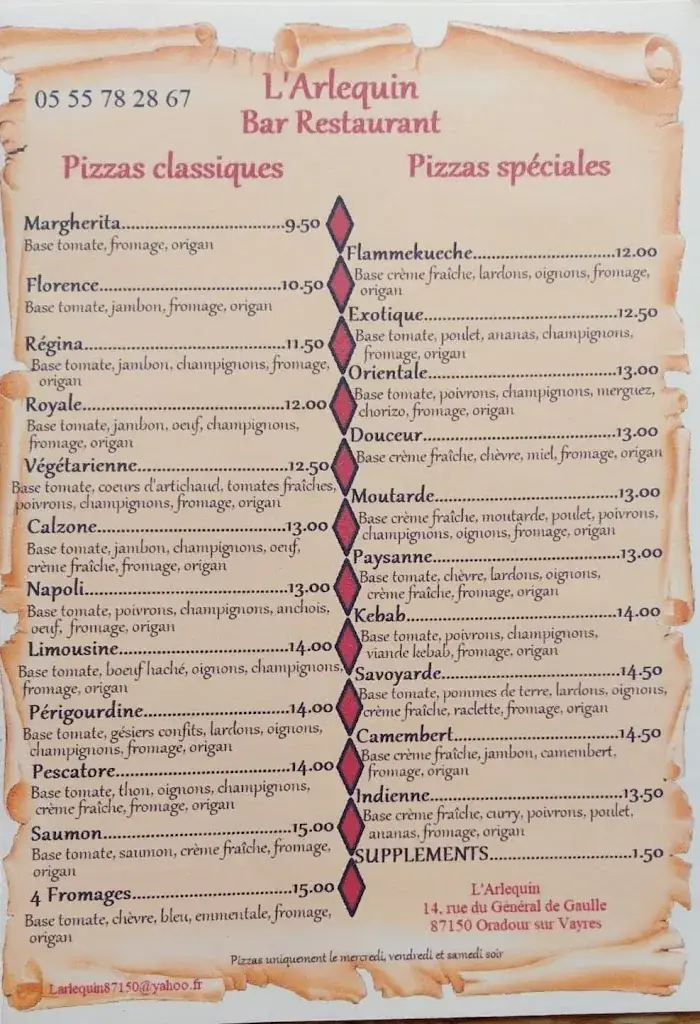 05 55 78 28 67
L'Arlequin
Bar Restaurant
Pizzas classiques
Margherita..................................9.50
Base tomate, fromage, origan
Florence.....................................10.50
Base tomate, jambon, fromage, origan
Régina.........................................11.50
Base tomate, jambon, champignons, fromage,
origan
Royale.........................................12.00
Base tomate, jambon, oeuf, champignons,
fromage, origan
Végétarienne..............................12.50
Base tomate, coeurs d'artichaud, tomates fraîches,
poivrons, champignons, fromage, origan
Calzone......................................13.00
Base tomate, jambon, champignons, oeuf,
crème fraîche, fromage, origan
Napoli........................................13.00
Base tomate, poivrons, champignons, anchois,
oeuf, fromage, origan
Limousine..................................14.00
Base tomate, boeuf haché, oignons, champignons,
fromage, origan
Périgourdine.............................14.00
Base tomate, gésiers confits, lardons, oignons,
champignons, fromage, origan
Pescatore...................................14.00
Base tomate, thon, oignons, champignons,
crème fraîche, fromage, origan
Saumon......................................15.00
Base tomate, saumon, crème fraîche, fromage,
origan
4 Fromages................................15.00
Base tomate, chèvre, bleu, emmentale, fromage,
origan
Pizzas spéciales
Flammekueche............................12.00
Base crème fraîche, lardons, oignons, fromage,
origan
Exotique......................................12.50
Base tomate, poulet, ananas, champignons,
fromage, origan
Orientale.....................................13.00
Base tomate, poivrons, champignons, merguez,
chorizo, fromage, origan
Douceur......................................13.00
Base crème fraîche, chèvre, miel, fromage, origan
Moutarde....................................13.00
Base crème fraîche, moutarde, poulet, poivrons,
champignons, oignons, fromage, origan
Paysanne.....................................13.00
Base tomate, chèvre, lardons, oignons,
crème fraîche, fromage, origan
Kebab..........................................14.00
Base tomate, poivrons, champignons,
viande kebab, fromage, origan
Savoyarde...................................14.50
Base tomate, pommes de terre, lardons, oignons,
crème fraîche, raclette, fromage, origan
Camembert.................................14.50
Base crème fraîche, jambon, camembert,
fromage, origan
Indienne.....................................13.50
Base crème fraîche, curry, poivrons, poulet,
ananas, fromage, origan
SUPPLEMENTS...........................1.50
L'Arlequin
14, rue du Général de Gaulle
87150 Oradour sur Vayres
Pizzas uniquement le mercredi, vendredi et samedi soir
Larlequin87150@yahoo.fr